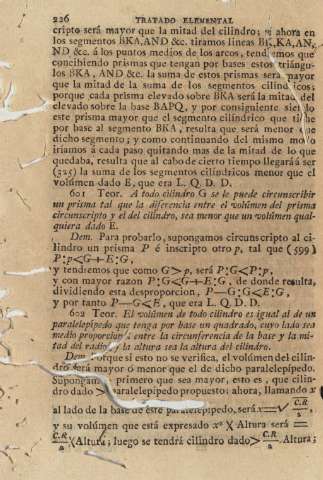 226 TRATADO ELEMENTAL
cripto será mayor que la mitad del cilindro; si ahora en
los segmentos BKA,AND &c. tiramos lineas BK,KA,AN,
ND &c. á los puntos medios de los arcos, tendremos que
concibiendo prismas que tengan por bases estos triángu-
los BKA, AND &c. la suma de estos prismas será mayor
que la mitad de la suma de los segmentos cilíndricos;
porque cada prisma elevado sobre BKA será la mitad del
elevado sobre la base BAPQ, y por consiguiente siendo
este prisma mayor que el segmento cilíndrico que tiene
por base al segmento BKA, resulta que será menor que
dicho segmento; y como continuando del mismo modo
iriamos á cada paso quitando mas de la mitad de lo que
quedaba, resulta que al cabo de cierto tiempo llegará á ser
(325) la suma de los segmentos cilíndricos menor que el
volúmen dado E, que era L. Q. D. D.
601 Teor. A todo cilindro G se le puede circunscribir
un prisma tal que la diferencia entre el volúmen del prisma
circunscripto y el del cilindro, sea menor que un volúmen qual-
quiera dado E.
Dem. Para probarlo, supongamos circunscripto al ci-
lindro un prisma P é inscripto otro p, tal que (599)
P:p<G+E:G,
y tendremos que como G>p, será P:G<P:p,
y con mayor razon P:G<G+E:G, de donde resulta,
dividiendo esta desproporcion, P—G:G<E:G,
y por tanto P—G<E, que era L. Q. D. D.
602 Teor. El volúmen de todo cilindro es igual al de un
paralelepípedo que tenga por base un quadrado, cuyo lado sea
medio proporcional entre la circunferencia de la base y la mi-
tad del radio, y la altura sea la altura del cilindro.
Dem. Porque si esto no se verifica, el volúmen del cilin-
dro será mayor ó menor que el de dicho paralelepípedo.
Supongamos primero que sea mayor, esto es, que cilin-
dro dado > paralelepípedo propuesto: ahora, llamando x
al lado de la base de este paralelepípedo, será x=√ C.R/2,
y su volúmen que está expresado x² X Altura será =
C.R/2 X Altura; luego se tendrá cilindro dado> C.R/2 Altura;